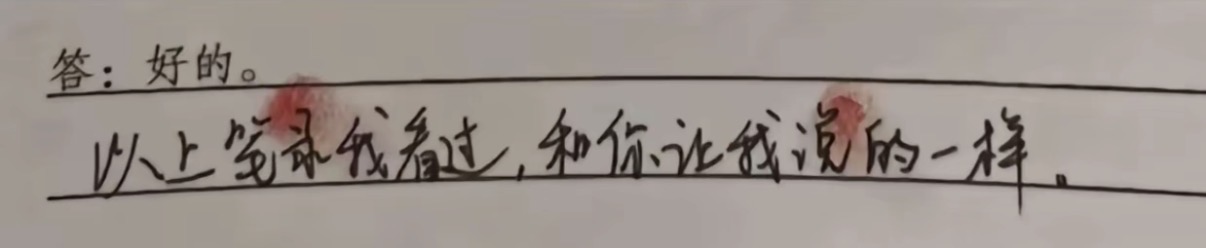 答：好的。
以上笔录我看过，和你让我说的一样。